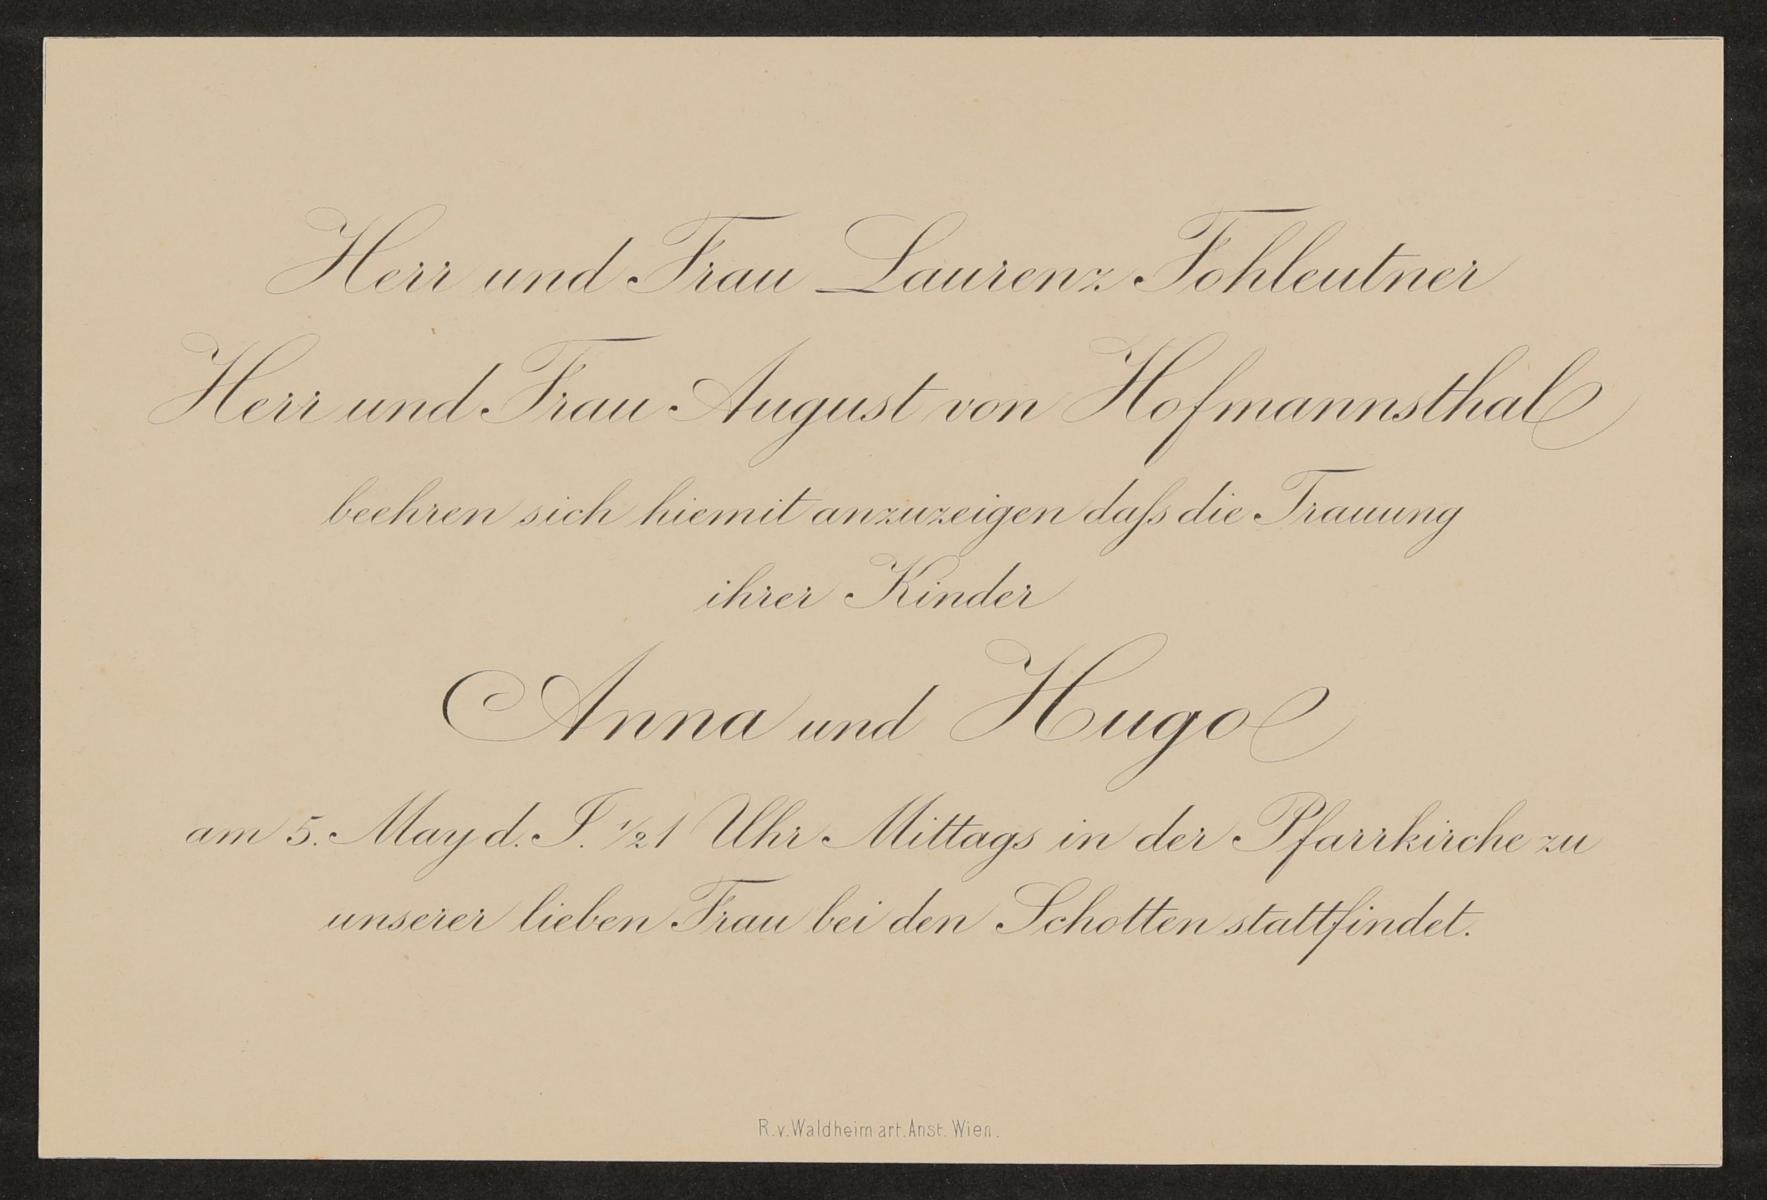 Herr und Frau Laurenz Fohleutner
Herr und Frau August von Hofmannsthal
beehren sich hiemit anzuzeigen daſs die Trauung
ihrer Kinder
Anna und Hugo
am 5. May d. J. ½1 Uhr Mittags in der Pfarrkirche zu
unserer lieben Frau bei den Schotten stattfindet.
R. v. Waldheim art. Anst. Wien.